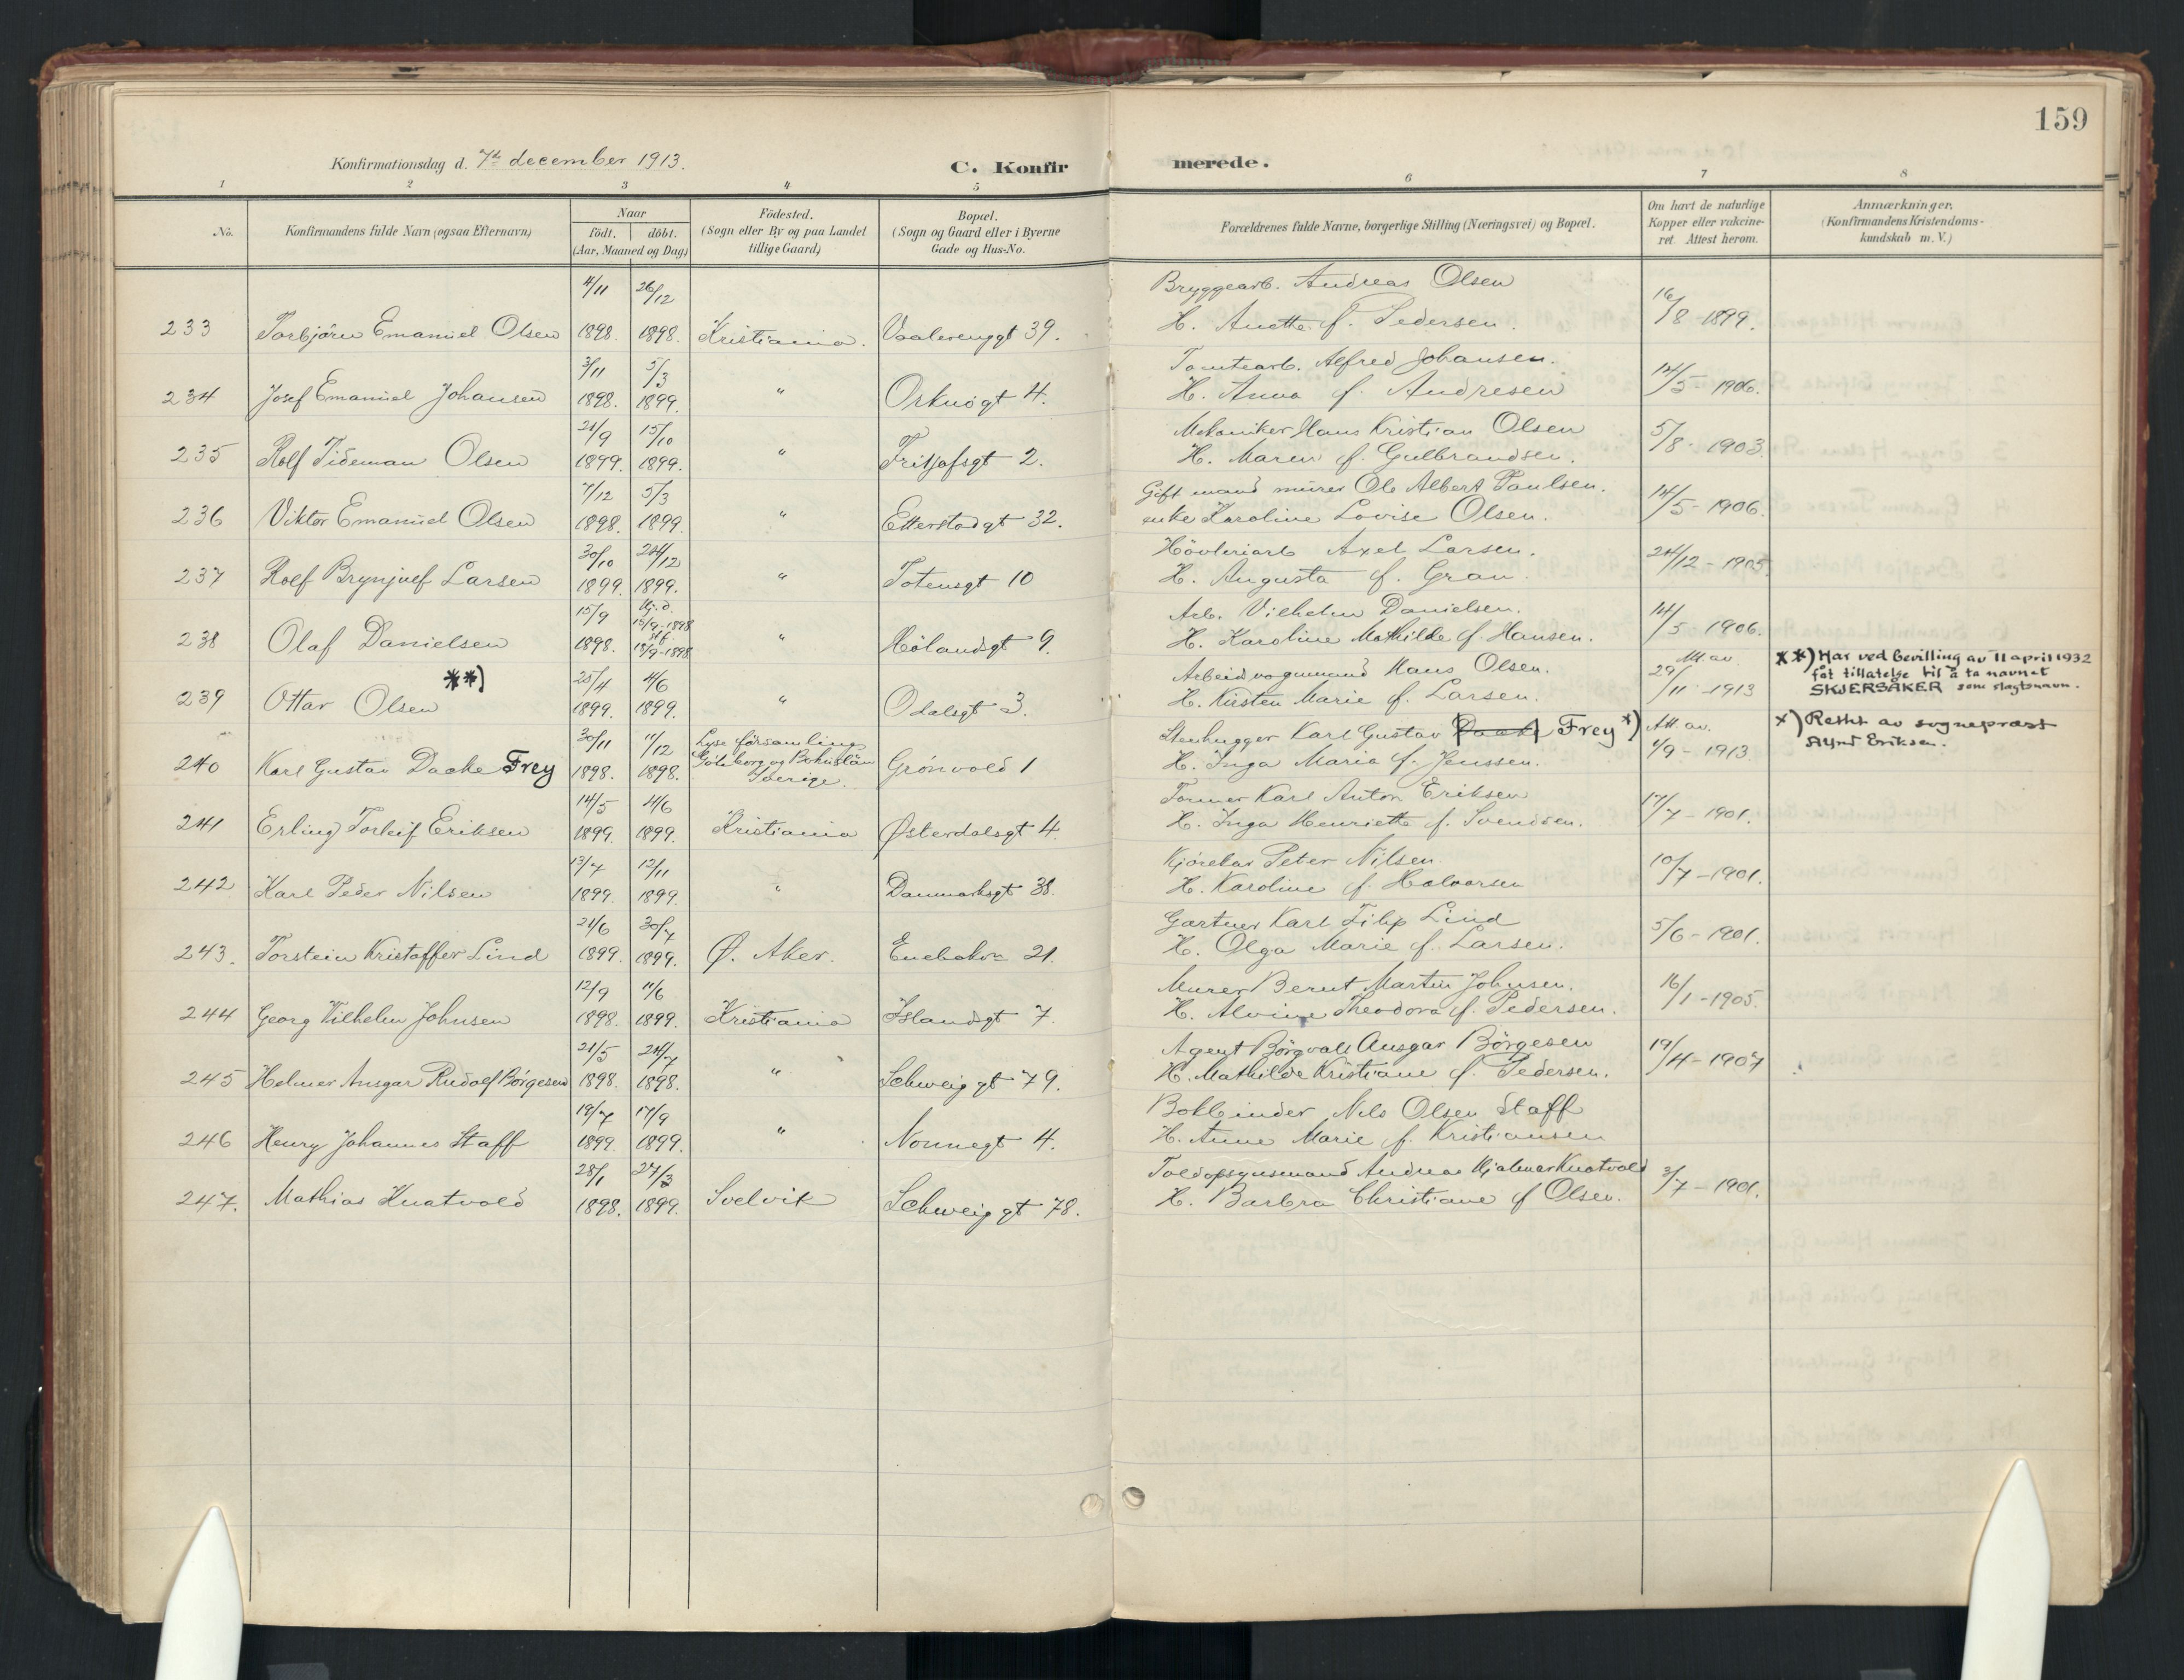 159
Konfirmationsdag d. 7de december 1913.
C. Konfirmerede.
1 2 3 4 5 6 7 8
No.
Konfirmandens fulde Navn (ogsaa Efternavn)
Naar
födt. döbt.
(Aar, Maaned og Dag)
Födested.
(Sogn eller By og paa Landet
tillige Gaard)
Bopæl.
(Sogn og Gaard eller i Byerne
Gade og Hus-No.
Forældrenes fulde Navne, borgerlige Stilling (Næringsvei) og Bopæl.
Om havt de naturlige
Kopper eller vakcine-
ret. Attest herom.
Anmærkninger.
(Konfirmandens Kristendoms-
kundskab m. V.)
4/11 26/12 Bryggearb. Andreas Olsen
233 Torbjörn Emanuel Olsen 1898. 1898. Kristiania. Vaalerenggt 39. H. Anette f. Pedersen. 16/8-1899.
3/11 5/3 Tomtearb. Alfred Johansen.
234 Josef Emanuel Johansen 1898. 1899. " Orknögt 4. H. Anna f. Andresen 14/5-1906.
21/9 15/10 Mekaniker Hans Kristian Olsen
235 Rolf Tideman Olsen 1899. 1899. " Fritjofsgt 2. H. Maren f. Gulbrandsen. 5/8-1903.
7/12 5/3 Gift mand murer Ole Albert Paulsen.
236 Viktor Emanuel Olsen 1898. 1899. " Etterstadgt 32. enke Karoline Lovise Olsen. 14/5-1906.
30/10 24/12 Hövleriarb Axel Larsen.
237 Rolf Brynjulf Larsen 1899. 1899. " Totensgt 10 H. Augusta f. Gran. 24/12-1905.
15/9 Hj.d. 15/9-1898 Arb. Vilhelm Danielsen.
238 Olaf Danielsen 1898. st.f. 18/9-1898 " Hölandsgt 9. H. Karoline Mathilde f. Hansen. 14/5-1906.
**) 25/4 4/6 Arbeidsvognmand Hans Olsen. Att. av
239 Ottar Olsen 1899. 1899. " Odalsgt 3. H. Kirsten Marie f. Larsen. 29/11-1913
**) Har ved bevilling av 11 april 1932
fåt tillatelse til å ta navnet
SKJERSÅKER som slagtsnavn.
30/11 11/12 Lyse församling Stenhugger Karl Gustav Daake Frey *) Att av.
240 Karl Gustav Daake Frey 1898. 1898. Göteborg og Bohuslän Sverige. Grönvold 1 H. Inga Maria f. Jenssen. 9/9-1913.
*) Rettet av sogneprest
Alfred Eriksen.
14/5 4/6 Former Karl Anton Eriksen
241 Erling Torleif Eriksen 1899. 1899. Kristiania Østerdalsgt 4. H. Inga Henriette f. Svendsen. 17/7-1901.
13/7 12/11 Kjörekar Peter Nilsen.
242 Karl Peder Nilsen 1899. 1899. " Danmarksgt 38. H. Karoline f. Halvorsen 10/7-1901.
21/6 30/7 Gartner Karl Filip Lind
243. Torstein Kristoffer Lind 1899. 1899. Ø. Aker. Enebakvn 21. H. Olga Marie f. Larsen. 5/6-1901.
12/9 11/6 Murer Bernt Martin Johnsen.
244 Georg Vilhelm Johnsen 1898. 1899. Kristiania Islandsgt 7. H. Alvine Theodora f. Pedersen. 16/1-1905.
21/5 24/7 Agent Börgvald Ansgar Börgesen
245 Helmer Ansgar Rudolf Börgesen 1898. 1898. " Schweiggt 79. H. Mathilde Kristiane f. Pedersen. 19/4-1907
19/7 17/9 Bokbinder Nils Olsen Staff
246 Henry Johannes Staff 1899. 1899. " Nonnegt 4. H. Anne Marie f. Kristiansen
28/1 27/3 Toldopsynsmand Andreas Hjalmar Knatvold
247. Mathias Knatvold 1898. 1899. Svelvik Schweiggt 78. H. Barbra Christiane f Olsen. 3/7-1901.